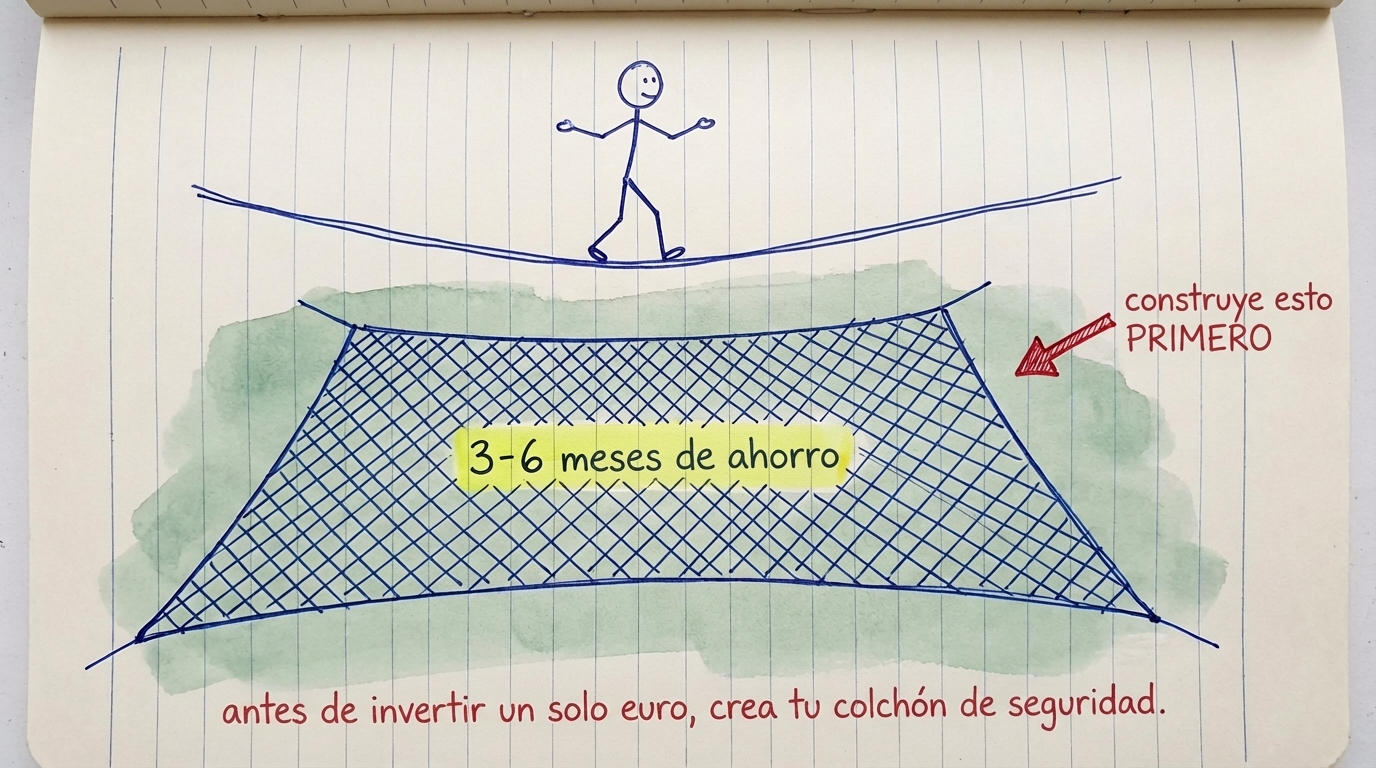 construye esto
PRIMERO
3-6 meses de ahorro
antes de invertir un solo euro, crea tu colchón de seguridad.